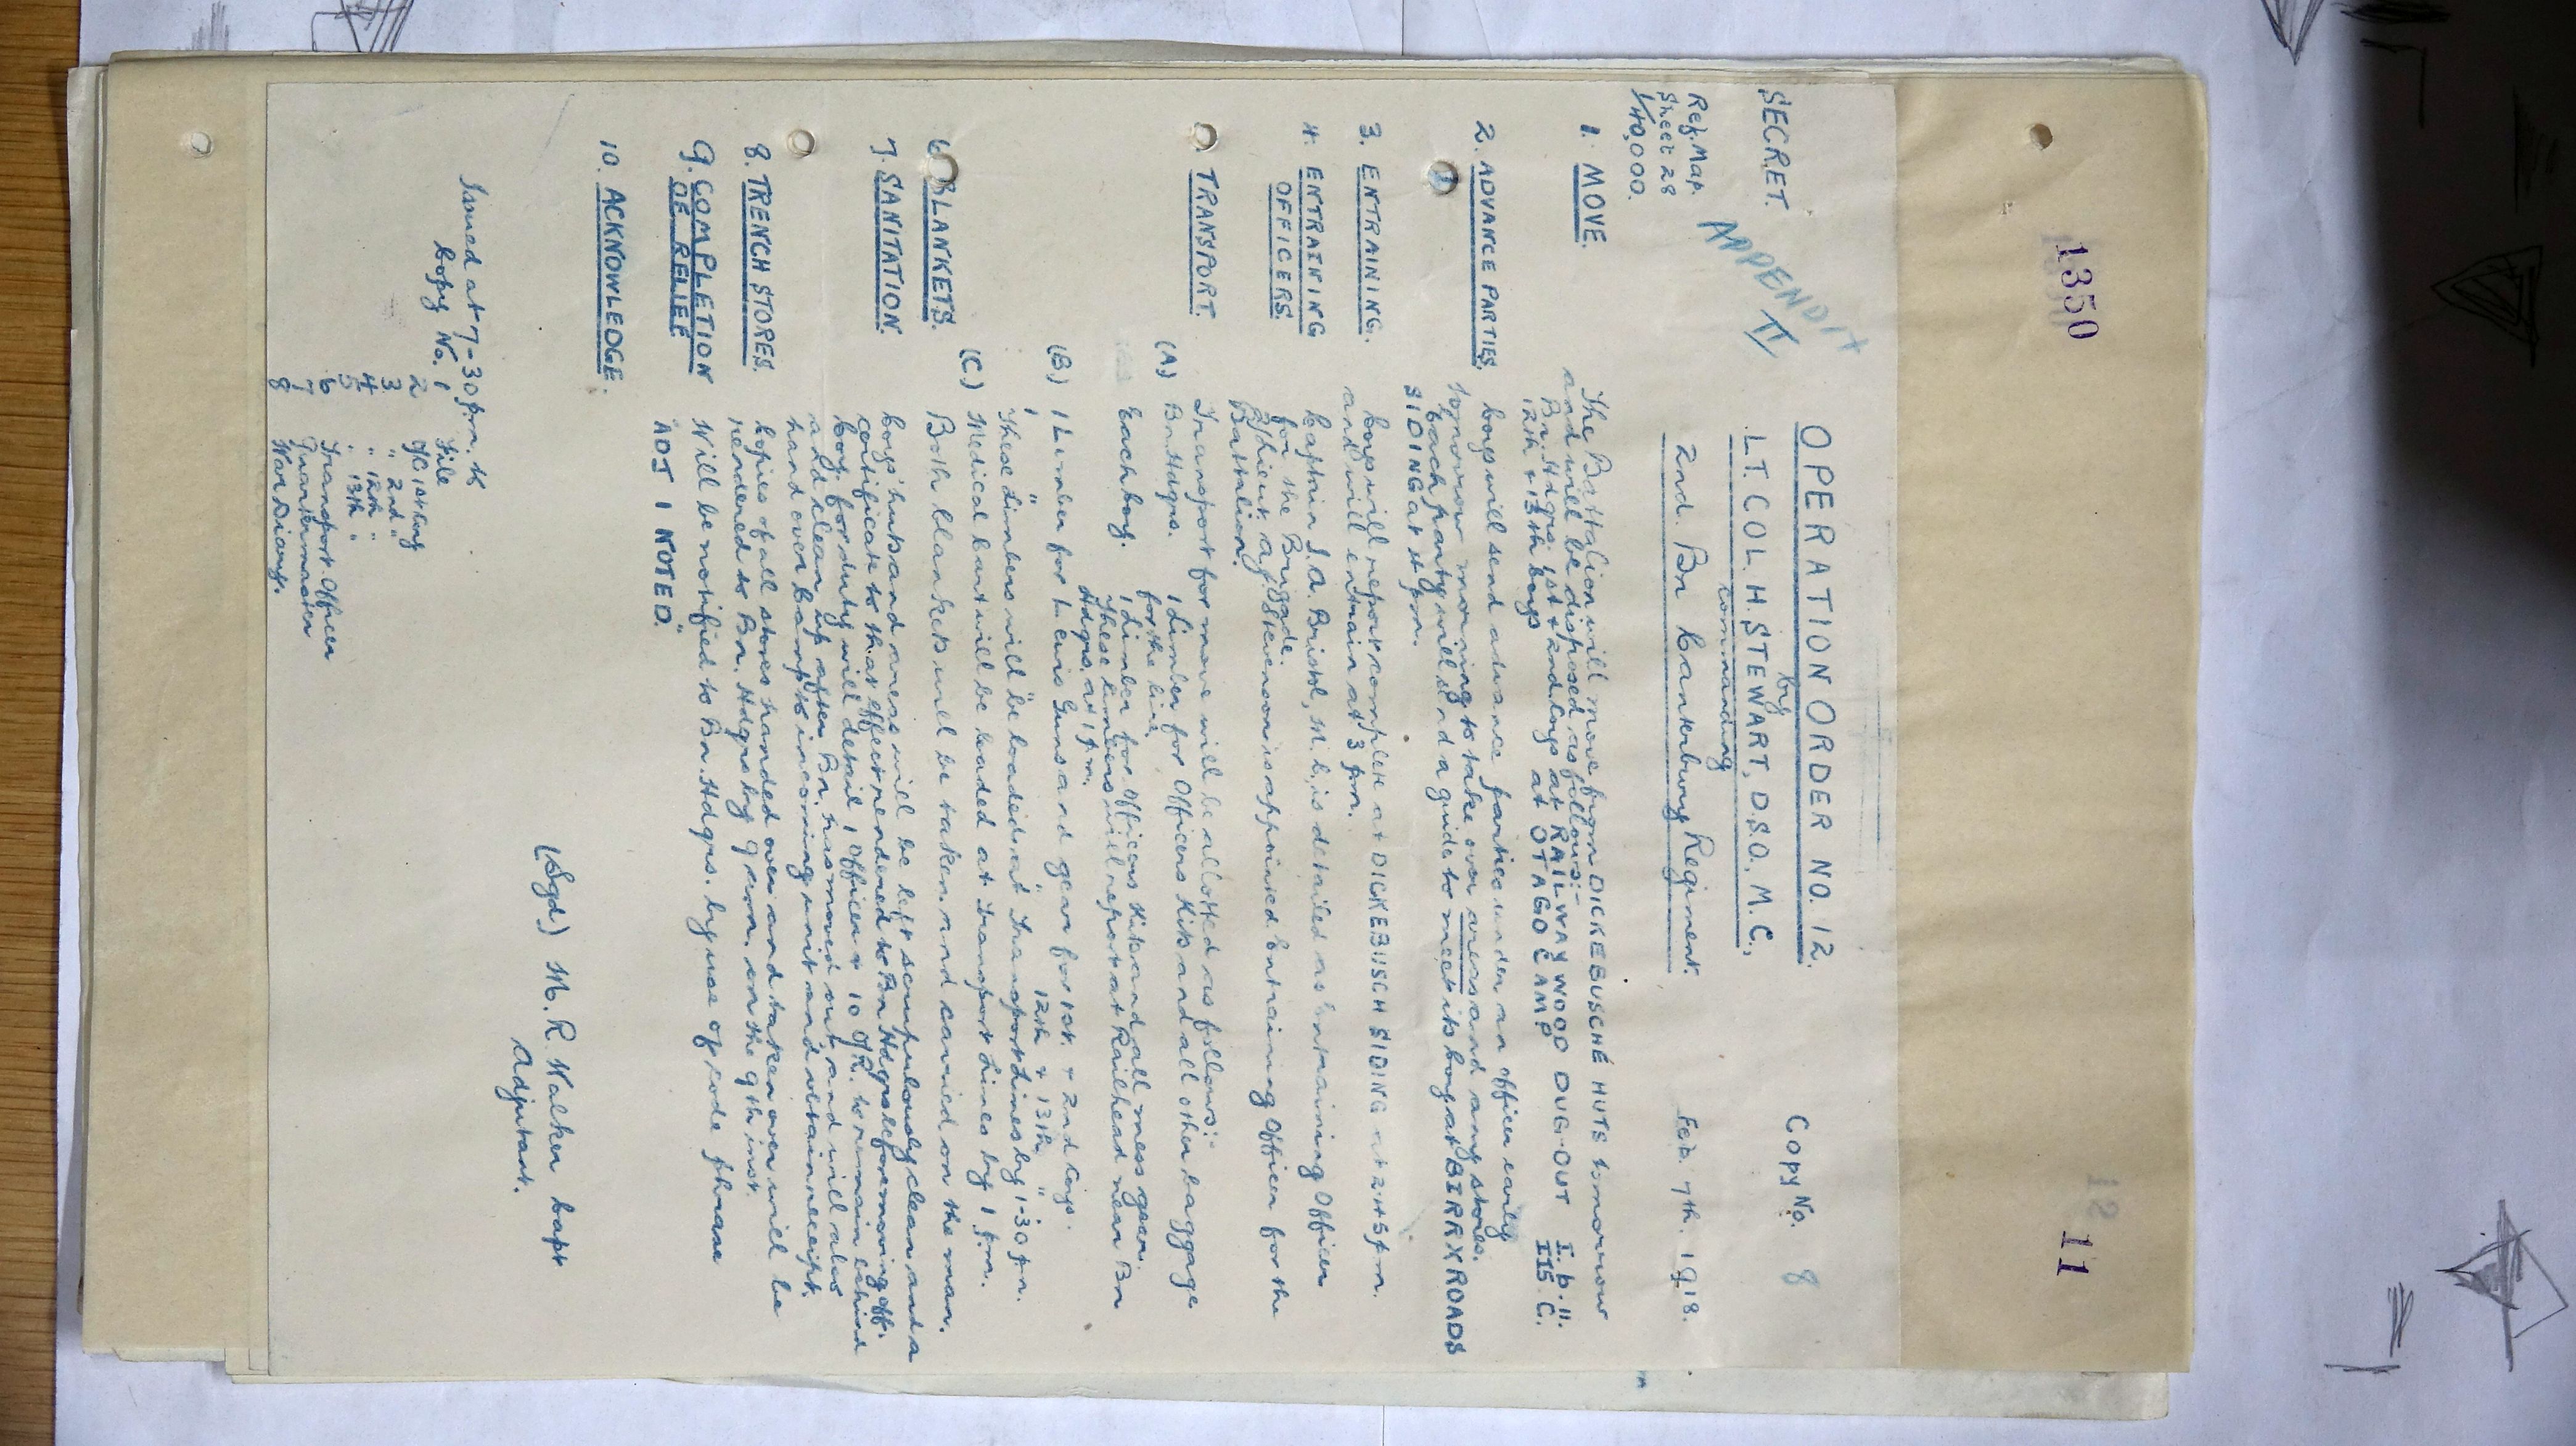 1350
12 11
SECRET.
OPERATION ORDER NO. 12.
Copy No. 8
by
LT. COL. H. STEWART, D.S.O., M.C.,
commanding
2nd. Bn Canterbury Regiment.
Feb. 7th. 1918.
Ref. Map.
Sheet 28
1/40,000.
APPENDIX
II
1. MOVE. The Battalion will move from DICKEBUSCHE HUTS tomorrow
and will be disposed as follows:-
Bn. Hdqrs. 1st & 2nd Coys at RAILWAY WOOD DUG-OUT I. b. 11.
12th & 13th Coys at OTAGO CAMP I I5 C.
2. ADVANCE PARTIES. Coys will send advance parties under an officer early
tomorrow morning to take over areas and any stores.
Each party will send a guide to meet its Coy at BIRR X ROADS
SIDING at 4 pm.
3. ENTRAINING. Coys will report complete at DICKEBUSCH SIDING at 2.45 pm.
and will entrain at 3 pm.
4. ENTRAINING Captain J. A. Bristol, M. C., is detailed as Entraining Officer
OFFICERS. for the Brigade.
2/Lieut. Stevenson is appointed Entraining Officer for the
Battalion.
TRANSPORT. Transport for move will be allotted as follows:-
(A) Bn Hdqrs. 1 Limber for Officers Kits and all other baggage
for the line.
Each Coy. 1 Limber for Officers Kits and all mess gear.
These limbers will report at Railhead near Bn
Hdqrs. at 1 pm.
(B) 1 Limber for Lewis Guns and gear for 1st. & 2nd Coys.
1 " " " " " " 12th & 13th "
These Limbers will be loaded at Transport Lines by 1-30 pm.
(C) Medical cart will be loaded at Transport Lines by 1 pm.
6. BLANKETS. Both blankets will be taken and carried on the man.
7. SANITATION. Coys' huts and areas will be left scrupulously clean and a
certificate to that effect rendered to Bn Hdqrs before moving off.
Coy. for duty will detail 1 Officer & 10 O/R. to remain behind
and clean up after Bn. has moved out and will also
hand over Camp to incoming unit and obtain receipt.
8. TRENCH STORES. Copies of all stores handed over and taken over will be
rendered to Bn. Hdqrs by 9 p.m. on the 9th inst.
9. COMPLETION Will be notified to Bn. Hdqrs. by use of code phrase
OF RELIEF "ADJ 1 NOTED".
10. ACKNOWLEDGE.
(Sgd) M. R. Walker Capt
Adjutant.
Issued at 7-30 p.m. to
Copy No. 1 File
2 O/C 1st Coy
3 " 2nd "
4 " 12th "
5 " 13th "
6 Transport Officer
7 Quartermaster
8 War Diary.